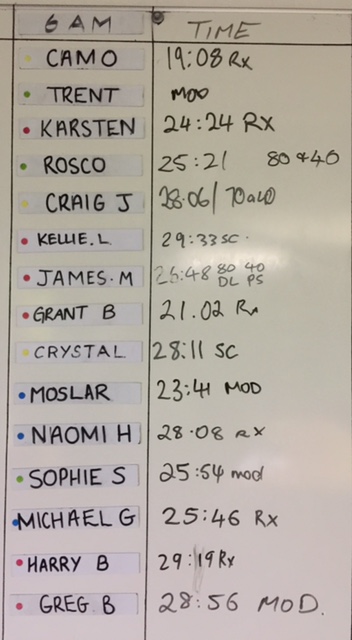 6 AM TIME
CAMO 19:08 Rx
TRENT MOD
KARSTEN 24:24 RX
ROSCO 25:21 80 & 40
CRAIG J 28.06/ 70 a 40
KELLIE.L 29:33 SC.
JAMES.M 26:48 80 DL 40 PS
GRANT B 21.02 Rx
CRYSTAL 28:11 SC
MOSLAR 23:41 MOD
NAOMI H 28.08 RX
SOPHIE S 25:54 mod
MICHAEL G 25:46 RX
HARRY B 29:19 Rx
GREG B 28:56 MOD.